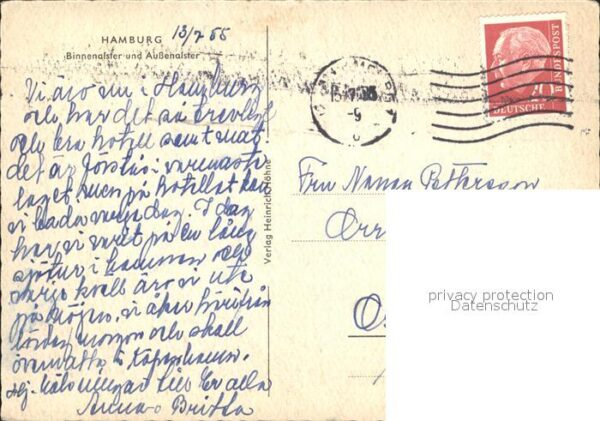 HAMBURG
Binnenalster und Außenalster
13/7 55
Vi äro nu i Hamburg
och har det så trevligt
och bra hotell samt mat.
det är förstås i varmaste
laget. men på hotellet kan
vi bada varje dag. I dag
har vi varit på en lång
sjötur i hamnen och
varje kväll äro vi ute
på nöjen. vi åker härifrån
lördag morgon och skall
övernatta i Köpenhamn.
Hälsningar till Er alla
Anna Britta
Verlag Heinrich Höhne
DEUTSCHE
BUNDESPOST
20
Fru Nanna Pettersson
privacy protection
Datenschutz